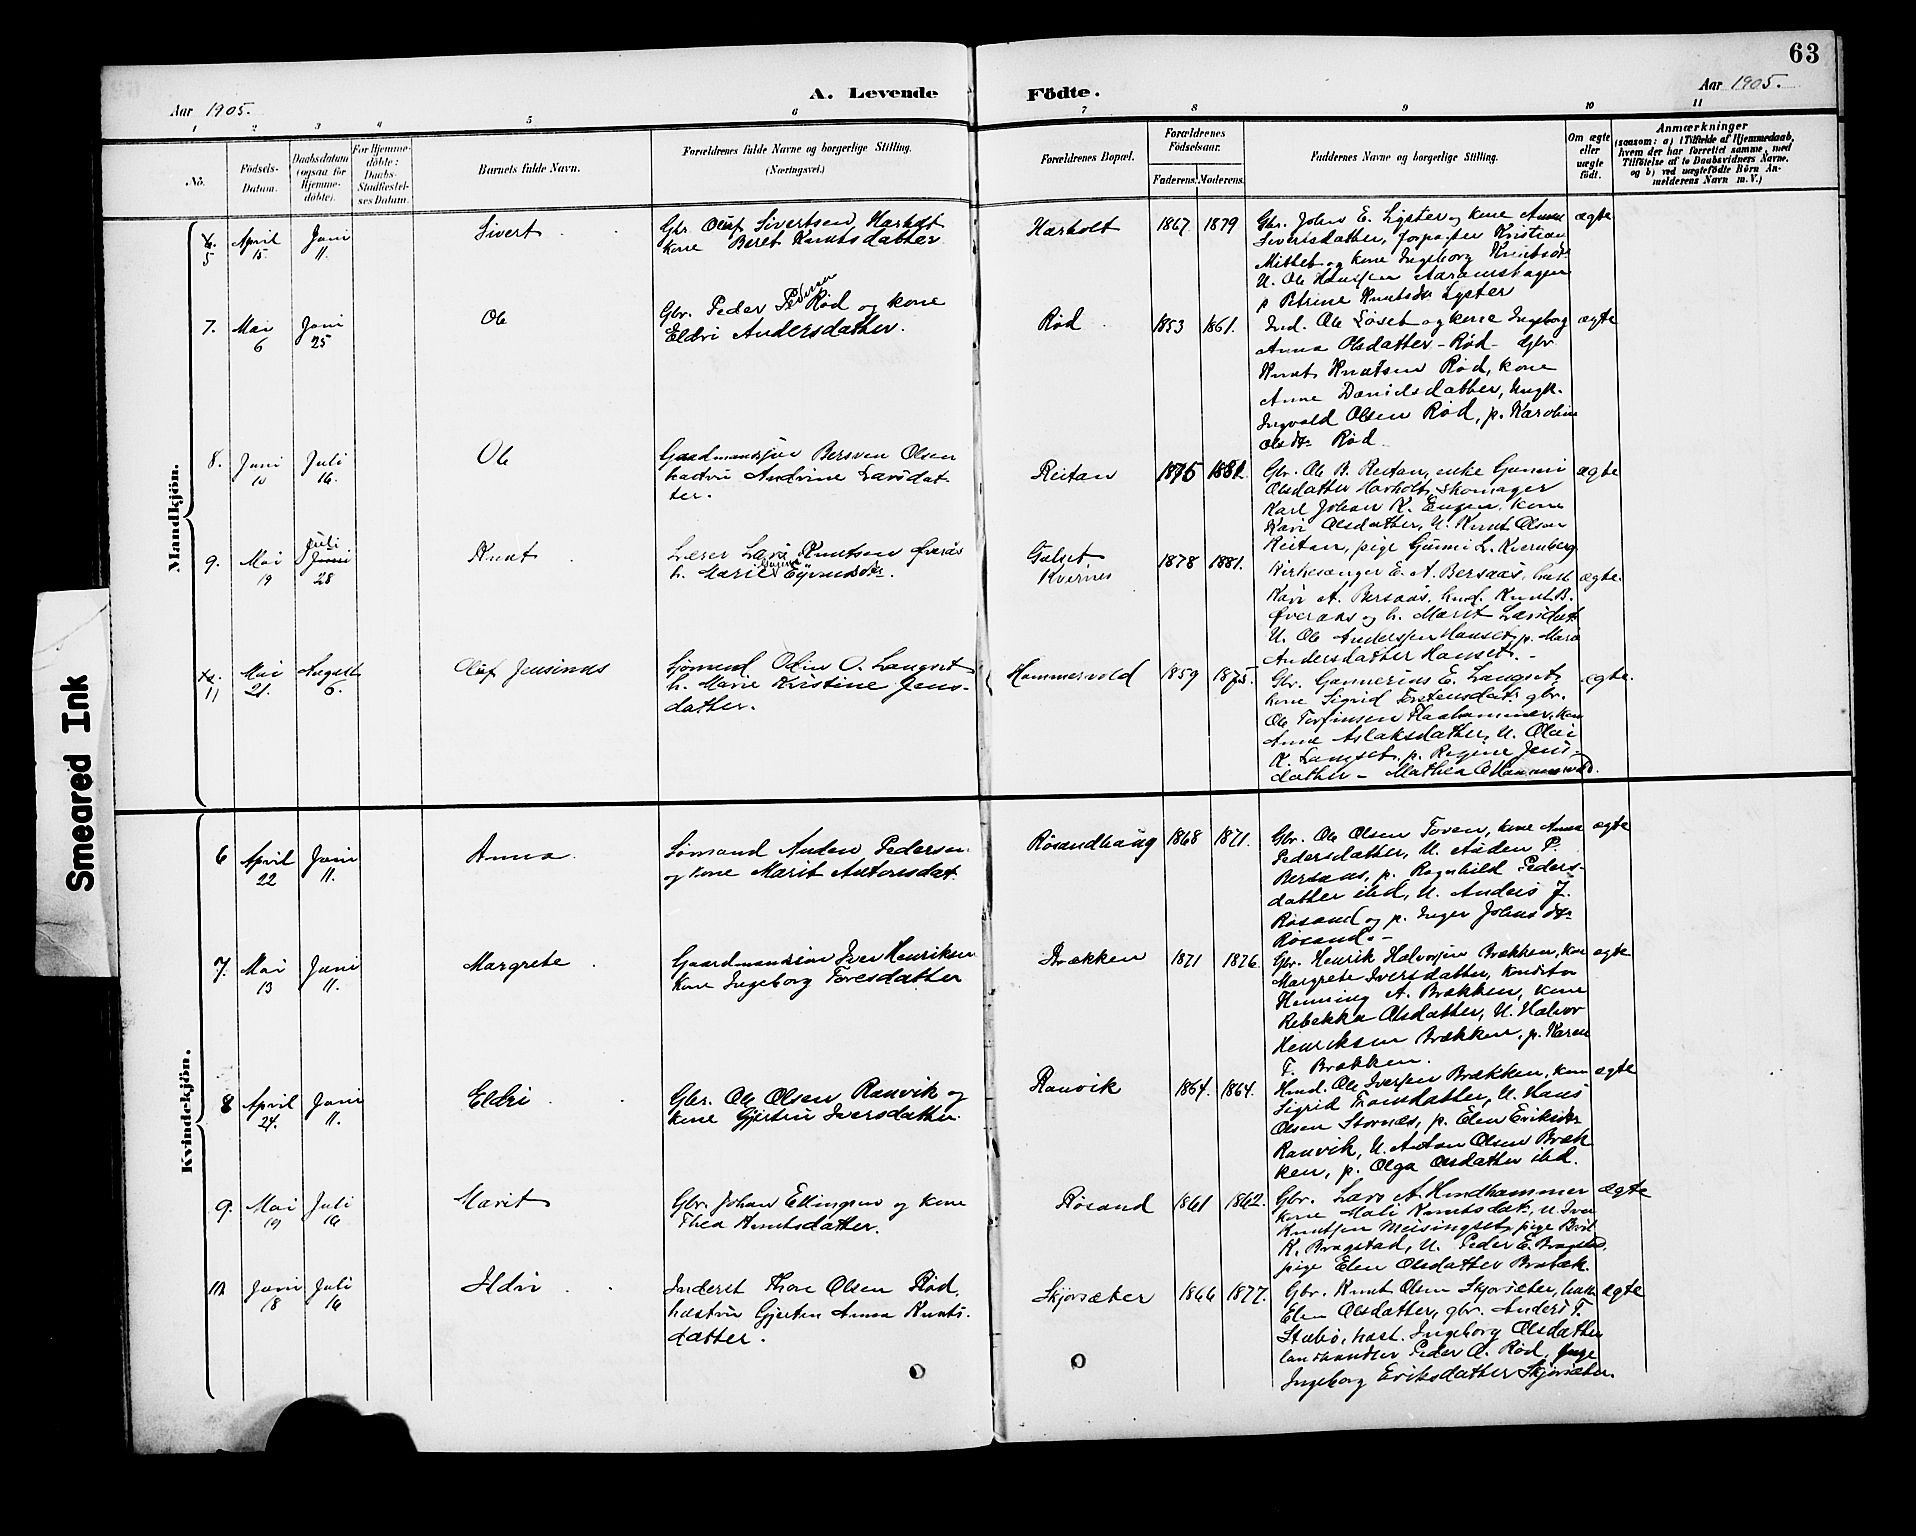 63
Aar 1905.
A. Levende
Födte.
Aar 1905.
1 2 3 4 5 6 7 8 9 10 11
No.
Födsels-
Datum.
Daabsdatum
(ogsaa for
Hjemme-
döbte).
For Hjemme-
döbte:
Daabs-
Stadfæstel-
ses Datum.
Barnets fulde Navn.
Forældrenes fulde Navne og borgerlige Stilling.
(Næringsvei.)
Forældrenes Bopæl.
Forældrenes
Födselsaar.
Faderens. Moderens.
Faddernes Navne og borgerlige Stilling.
Om ægte
eller
uægte
födt.
Anmærkninger
(saasom: a) i Tilfælde af Hjemmedaab,
hvem der har forrettet samme, med
Tilföielse af to Daabsvidners Navne.
og b) ved uægtefödte Börn An-
melderens Navn m. V.)
Mandkjön.
5 April 15. Juni 11. Sivert
Gbr. Oluf Sivertsen Harholt
kone Beret Knutsdatter
Harholt 1867 1879
Gbr. Johan E. Ligster og kone Anne
Sivertsdatter, forpagter Kristian
Mittet og kone Ingeborg Knutsdtr
U. Ole
p. Petrine Knutsdtr Ligster
ægte
7. Mai 6 Juni 25 Ole
Gbr. Peder Pedersen Rød og kone
Eldri Andersdatter.
Rød 1853 1861.
Ind. Ole Løset og kone Ingeborg
Anna Olsdatter - Rød - Gbr.
Knut Knutsen Rød, kone
Anne Danielsdatter, Ungk.
Ingvald Olsen Rød, p. Karoline
Olsdtr Rød
ægte
8. Juni 10 Juli 16. Ole
Gaardmandsjøn Bersven Olsen
hustru Andrine Larsdat-
ter.
Reitan 1875 1881.
Gbr. Ole B. Reitan, enke Gunni
Olsdatter Harholt, skomager
Karl Johan K. Eugen, kone
Kari Olsdatter, U. Knut Olsen
Reitan, pige Gunni L. Kvernberg
ægte
9. Mai 19 Juli 28 Knut
Lærer Lars Knutsen Øveraas
h. Marie
Gulset
Kvernes
1878 1881.
Kirkesanger E. A. Bersaas, hust.
Kari A. Bersaas, hmd. Knut B.
Øveraas og h. Marit Larsdat.
U. Ole Andersen Hanset, p. Mari
Andersdatter Hanset.
ægte.
11 Mai 21. August 6. Oluf Jensinus
Sjømand Odin O. Langset
h. Marie Kristine Jens-
datter.
Hammervold 1859 1875.
Gbr. Gunnerius E. Langset,
kone Sigrid Torstensdat. gbr.
Ole Torfinsen Flashammer, kone
Anne Aslaksdatter, U. Olai
K. Langset, p. Regine Jens-
datter - Mathea O. Hammervold.
ægte.
Kvindekjön.
6 April 22 Juni 11. Anna
Sømand Auden Pedersen
og kone Marit Antonsdat.
Røsandhaug 1868 1871.
Gbr. Ole Olsen Toven, kone Anna
Pedersdatter, U. Auden P.
Bersaas, p. Ragnhild Peders-
datter ibd, U. Anders J.
Røsand og p. Inger Johnsdtr
Røsand. -
ægte
7. Mai 13 Juni 11. Margrete
Gaardmandsøn Iver Henriksen
kone Ingeborg Toresdatter
Brækken 1871 1876.
Gbr. Henrik Halvorsen Brækken, kone
Margrete Iversdatter, konditor
Henning A. Brækken, kone
Rebekka Olsdatter, U. Halvor
Henriksen Brækken, p. Karen
T. Brækken.
ægte
8 April 24. Juni 11. Eldri
Gbr. Ole Olsen Ranvik og
kone Gjertru Iversdatter.
Ranvik 1864. 1864.
Hmd. Ole Iversen Brækken, kone
Sigrid Tronsdatter, U. Hans
Olsen Stornæs, p. Elen Eriksdtr
Ranvik, U. Anton Olsen Bræk-
ken, p. Olga Olsdatter ibd.
ægte
9. Mai 19 Juli 16 Marit
Gbr. Johan Ellingsen og kone
Thea Knutsdatter.
Røsand 1861 1862.
Gbr. Lars A. Hindhammer
kone Mali Knutsdat., U. Iver
Knutsen Meisingset, pige Beret
K. Bragstad, U. Peder E. Bragstad,
pige Elen Olsdatter
ægte
10 Juni 18 Juli 16 Ildri
Inderst Thore Olsen Rød,
hustru Gjertru Anna Knuts-
datter.
Skjorsæter 1866 1877.
Gbr. Knut Olsen Skjorsæter, hust.
Elen Olsdatter, gbr. Anders T.
Stubø, hust. Ingeborg Olsdatter
landhandler Peder O. Rød, pige
Ingeborg Eriksdatter Skjorsæter.
ægte
Smeared Ink